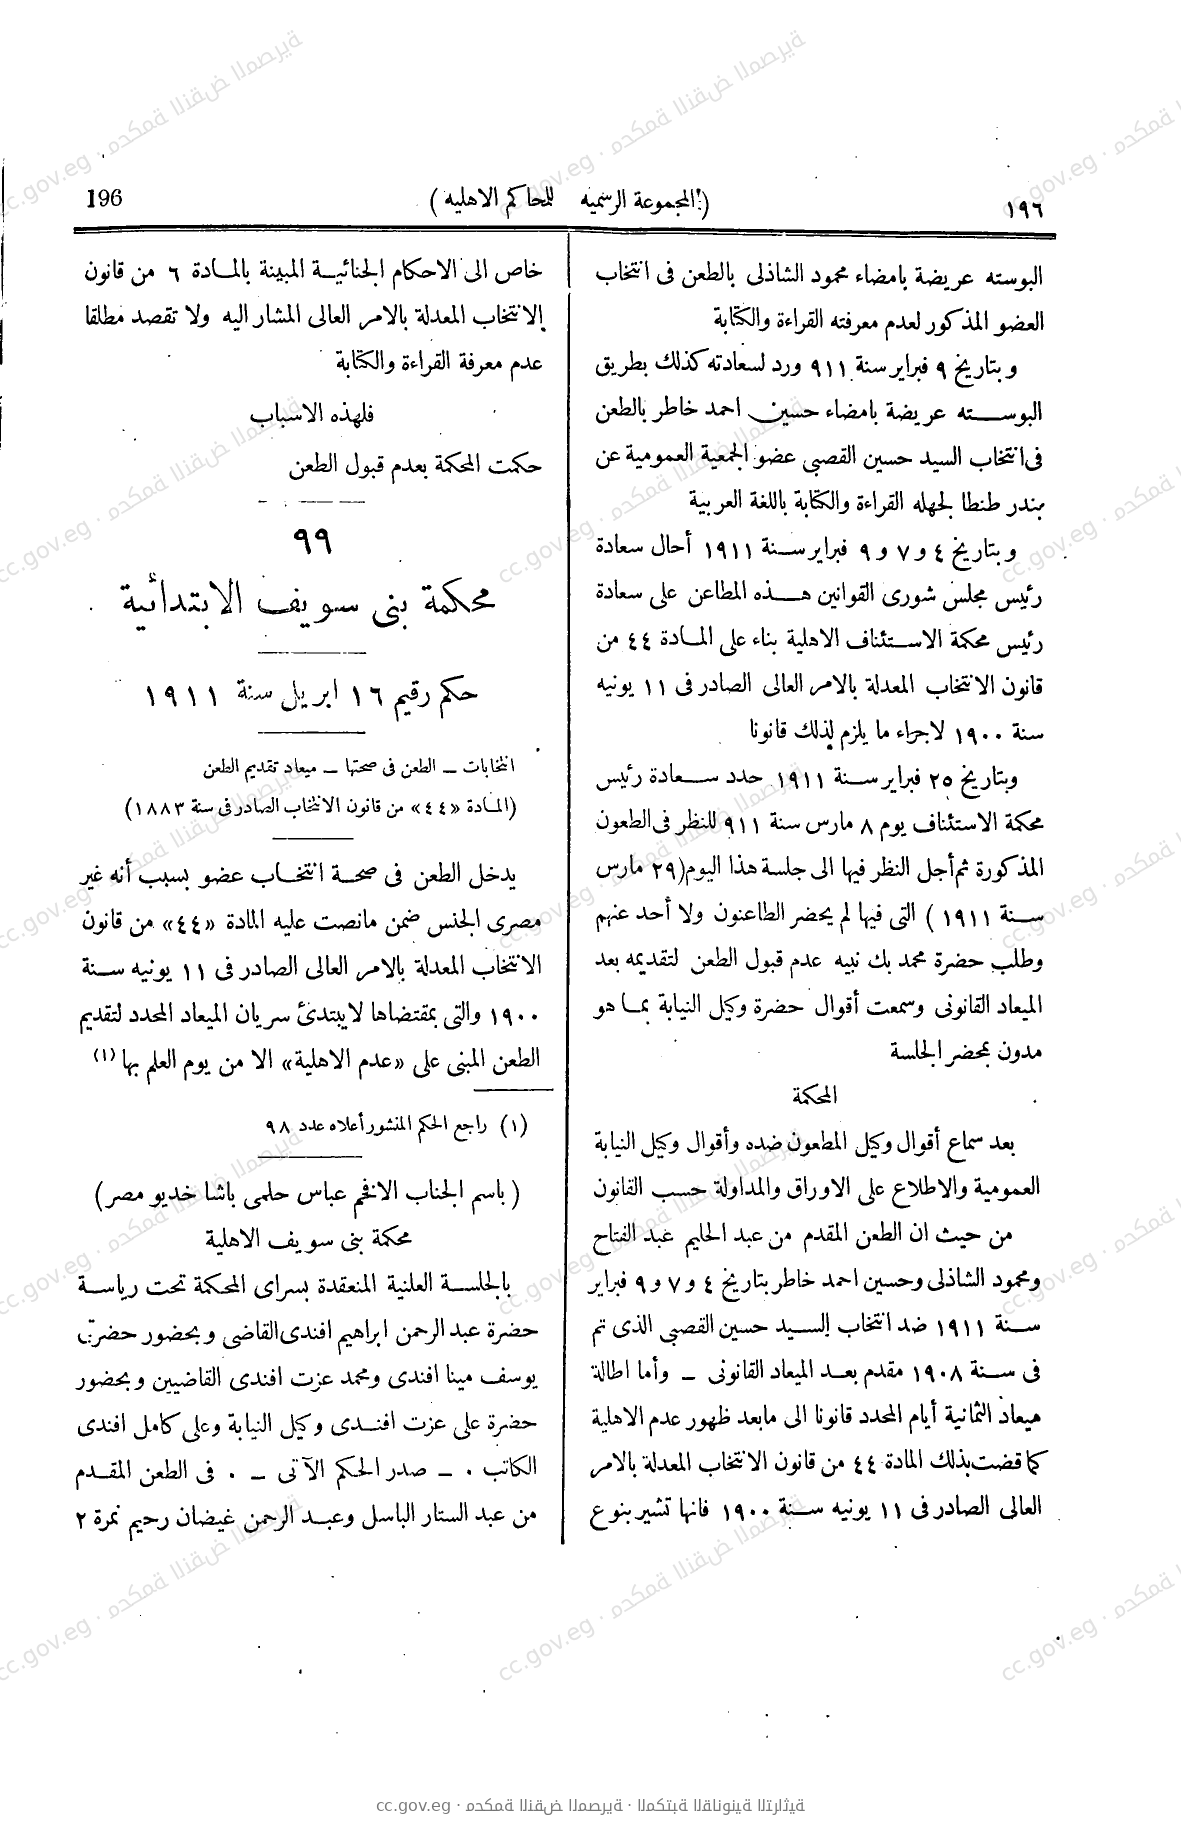 ١٩٦
(المجموعة الرسميه للمحاكم الاهليه)
196
البوسته عريضة بامضاء محمود الشاذلى بالطعن فى انتخاب
العضو المذكور لعدم معرفته القراءة والكتابة
وبتاريخ ٩ فبراير سنة ٩١١ ورد لسعادته كذلك بطريق
البوسته عريضة بامضاء حسين احمد خاطر بالطعن
فى انتخاب السيد حسين القصبى عضو الجمعية العمومية عن
بندر طنطا لجهله القراءة والكتابة باللغة العربية
وبتاريخ ٤ و ٧ و ٩ فبراير سنة ١٩١١ أحال سعادة
رئيس مجلس شورى القوانين هذه المطاعن على سعادة
رئيس محكمة الاستئناف الاهلية بناء على المادة ٤٤ من
قانون الانتخاب المعدلة بالامر العالى الصادر فى ١١ يونيه
سنة ١٩٠٠ لاجراء ما يلزم لذلك قانونا
وبتاريخ ٢٥ فبراير سنة ١٩١١ حدد سعادة رئيس
محكمة الاستئناف يوم ٨ مارس سنة ٩١١ للنظر فى الطعون
المذكورة ثم أجل النظر فيها الى جلسة هذا اليوم (٢٩ مارس
سنة ١٩١١) التى فيها لم يحضر الطاعنون ولا أحد عنهم
وطلب حضرة محمد بك نبيه عدم قبول الطعن لتقديمه بعد
الميعاد القانونى وسمعت أقوال حضرة وكيل النيابة بما هو
مدون بمحضر الجلسة
المحكمة
بعد سماع أقوال وكيل المطعون ضده وأقوال وكيل النيابة
العمومية والاطلاع على الاوراق والمداولة حسب القانون
من حيث ان الطعن المقدم من عبد الحليم عبد الفتاح
ومحمود الشاذلى وحسين احمد خاطر بتاريخ ٤ و ٧ و ٩ فبراير
سنة ١٩١١ ضد انتخاب السيد حسين القصبى الذى تم
فى سنة ١٩٠٨ مقدم بعد الميعاد القانونى ـ وأما اطالة
ميعاد الثمانية أيام المحدد قانونا الى ما بعد ظهور عدم الاهلية
كما قضت بذلك المادة ٤٤ من قانون الانتخاب المعدلة بالامر
العالى الصادر فى ١١ يونيه سنة ١٩٠٠ فانها تشير بنوع
خاص الى الاحكام الجنائية المبينة بالمادة ٦ من قانون
الانتخاب المعدلة بالامر العالى المشار اليه ولا تقصد مطلقا
عدم معرفة القراءة والكتابة
فلهذه الاسباب
حكمت المحكمة بعدم قبول الطعن
٩٩
محكمة بنى سويف الابتدائية
حكم رقيم ١٦ ابريل سنة ١٩١١
انتخابات ـ الطعن فى صحتها ـ ميعاد تقديم الطعن
(المادة «٤٤» من قانون الانتخاب الصادر فى سنة ١٨٨٣)
يدخل الطعن فى صحة انتخاب عضو بسبب أنه غير
مصرى الجنس ضمن مانصت عليه المادة «٤٤» من قانون
الانتخاب المعدلة بالامر العالى الصادر فى ١١ يونيه سنة
١٩٠٠ والتى بمقتضاها لايبتدئ سريان الميعاد المحدد لتقديم
الطعن المبنى على «عدم الاهلية» الا من يوم العلم بها (١)
(١) راجع الحكم المنشور أعلاه عدد ٩٨
(باسم الجناب الافخم عباس حلمى باشا خديو مصر)
محكمة بنى سويف الاهلية
بالجلسة العلنية المنعقدة بسراى المحكمة تحت رياسة
حضرة عبد الرحمن ابراهيم افندى القاضى وبحضور حضرتى
يوسف مينا افندى ومحمد عزت افندى القاضيين وبحضور
حضرة على عزت افندى وكيل النيابة وعلى كامل افندى
الكاتب . ـ صدر الحكم الآتى ـ . فى الطعن المقدم
من عبد الستار الباسل وعبد الرحمن غيضان رحيم نمرة ٢
cc.gov.eg · محكمة النقض المصرية · المكتبة القانونية التراثية